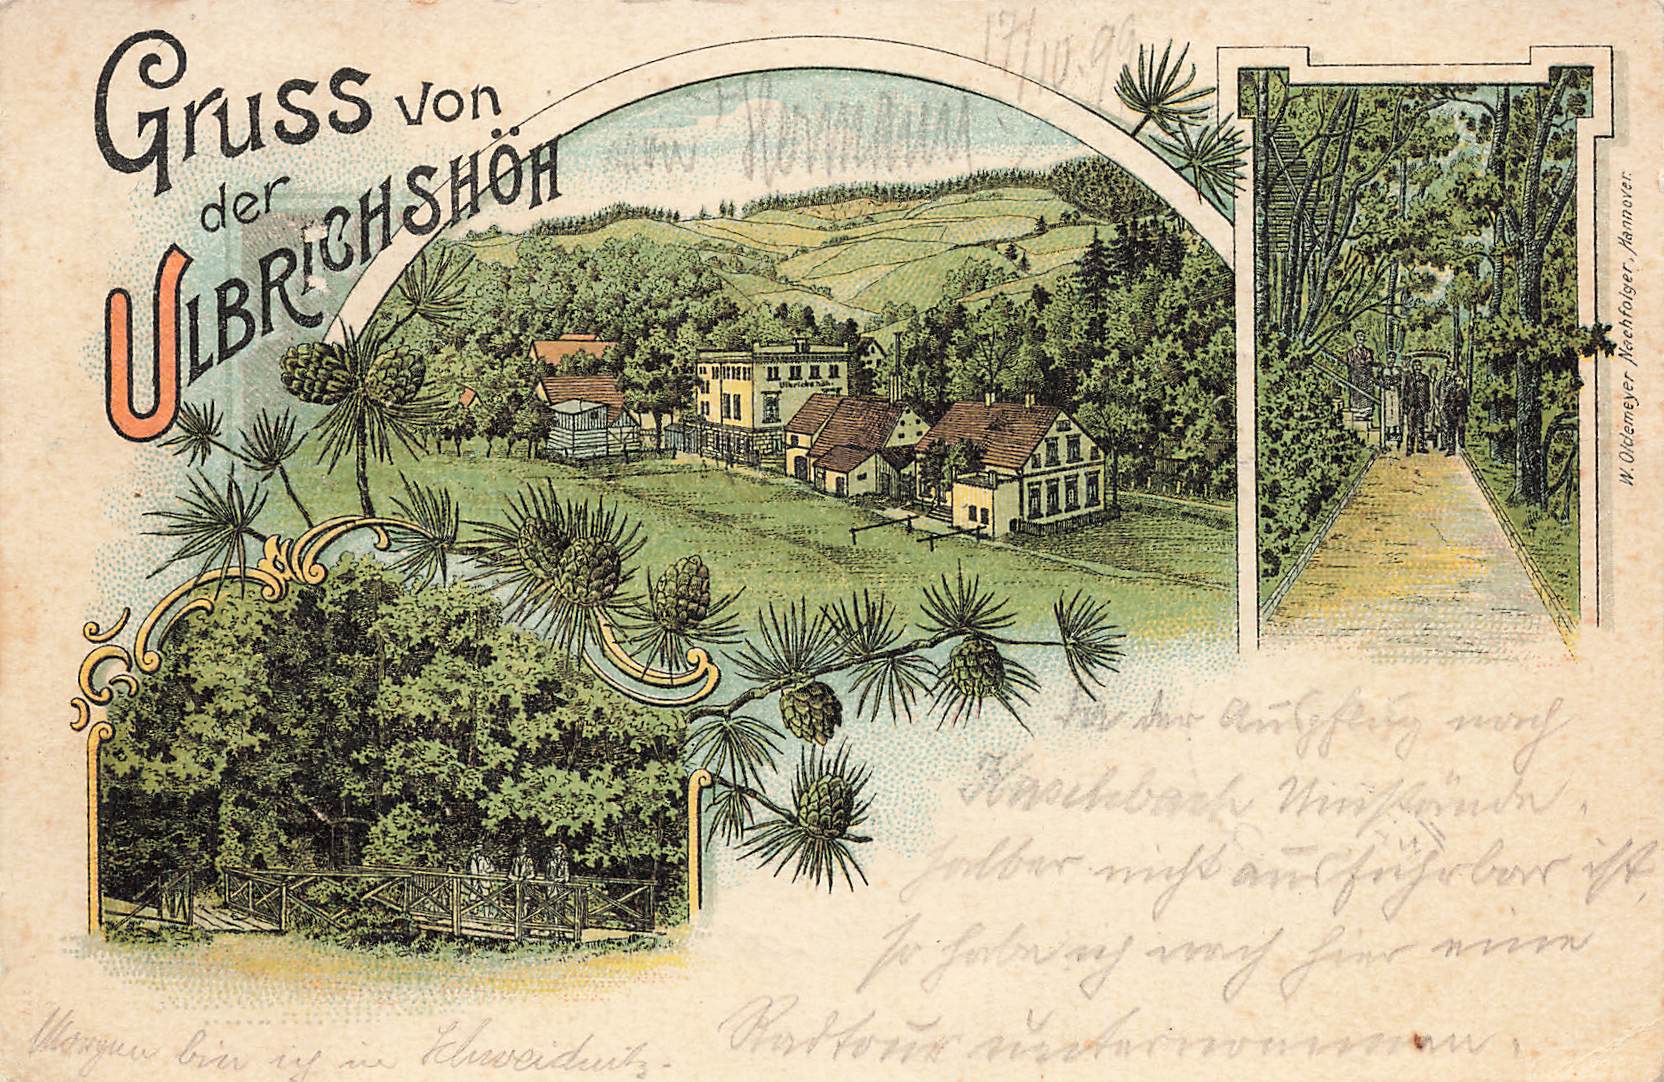 17/10.99
Gruss von
der
ULBRICHSHÖH
von Hermann
Ulbrichshöh
W. Oldemeyer Nachfolger, Hannover.
Da der Ausflug nach
Haselbach Umstände
halber nicht ausführbar ist,
so habe ich nach hier eine
Radtour unternommen.
Morgen bin ich in Schweidnitz.